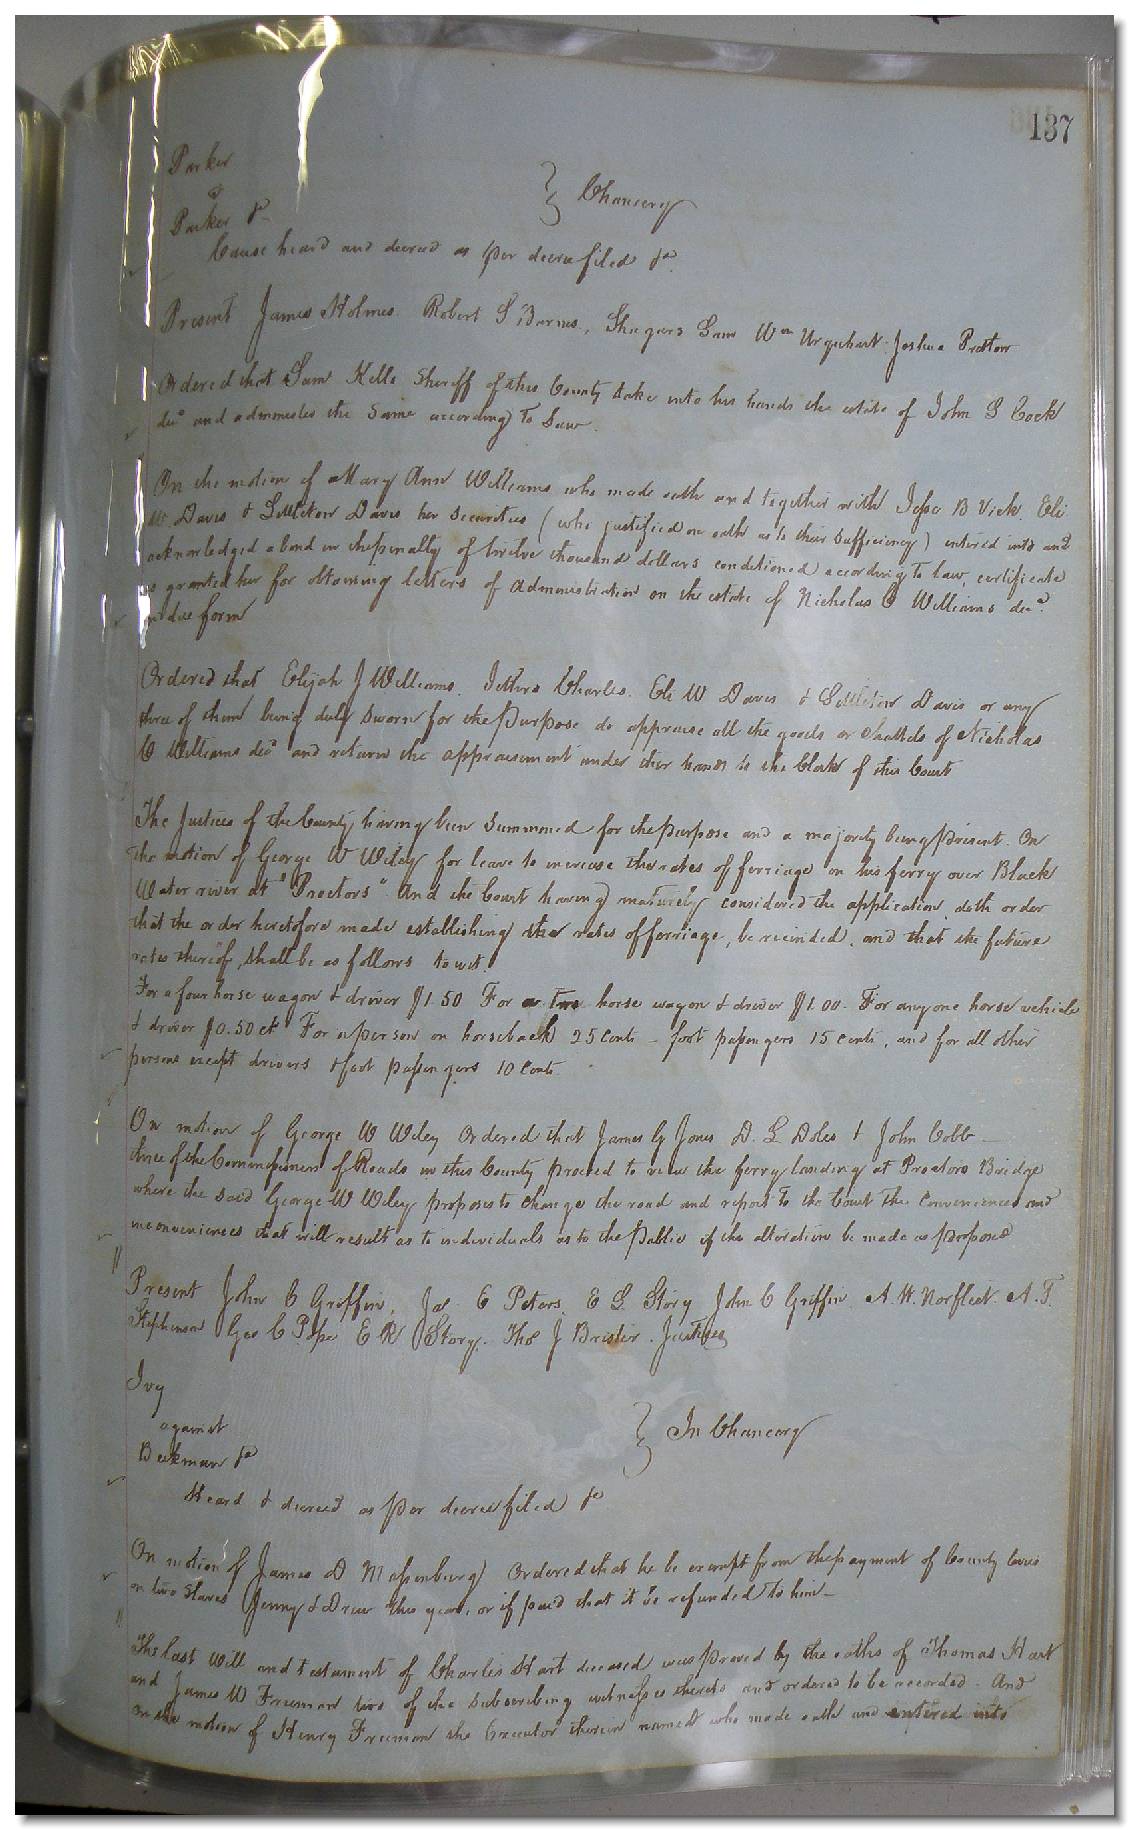 137
Parker
vs
Parker &c
} Chancery
Cause heard and decreed as per decree filed &c
Present James Holmes. Robert S Barnes, Sam Wm Urquhart. Joshua Pretlow
Ordered that Sam Kello Sheriff of this County take into his hands the estate of John S Cock
decd and administer the same according to Law.
On the motion of Mary Ann Williams who made oath and together with Jesse B Vick. Eli
W Davis & Littleton Davis her securities (who justified on oath as to their sufficiency) entered into and
acknowledged a bond in the penalty of twelve thousand dollars conditioned according to law, certificate
is granted her for obtaining letters of Administration on the estate of Nicholas C Williams decd.
in due form
Ordered that Elijah J Williams. Jethro Charles. Eli W Davis & Littleton Davis or any
three of them being duly sworn for the purpose do appraise all the goods or chattels of Nicholas
C Williams decd and return the appraisement under their hands to the Clerk of this Court
The Justices of the County having been summoned for the purpose and a majority being present. On
the motion of George W Wiley for leave to increase the rates of ferriage on his ferry over Black
Water river at "Proctors" And the Court having maturely considered the application doth order
that the order heretofore made establishing the rates of ferriage, be recinded, and that the future
rates thereof, shall be as follows to wit.
For a four horse wagon & driver $1.50 For a Two horse wagon & driver $1.00. For any one horse vehicle
& driver $0.50 ct For a person on horseback 25 cents - foot passengers 15 cents, and for all other
persons except drivers & foot passengers 10 cents
On motion of George W Wiley Ordered that James G Jones D. L. Doles & John Cobb
three of the Commissioners of Roads in this County proceed to view the ferry landing at Proctors Bridge
where the said George W Wiley proposes to change the road and report to the Court the conveniences and
inconveniences that will result as to individuals as to the Public if the alteration be made as proposed
Present John C Griffin, Jas E Peters. E L Story John C Griffin A. H. Norfleet. A. T.
Stephenson Geo C Pope E R Story. Tho J Brister. Justices
Ivy
against
Beekman &c
} In Chancery
Heard & decreed as per decree filed &c
On motion of James D Massenburg Ordered that he be exempt from the payment of County levies
on two slaves Jenny & Drew this year, or if paid that it be refunded to him—
The last Will and testament of Charles Hart deceased was proved by the oaths of Thomas Hart
and James W Freeman two of the subscribing witnesses thereto and ordered to be recorded. And
on the motion of Henry Freeman the Executor therein named who made oath and entered into